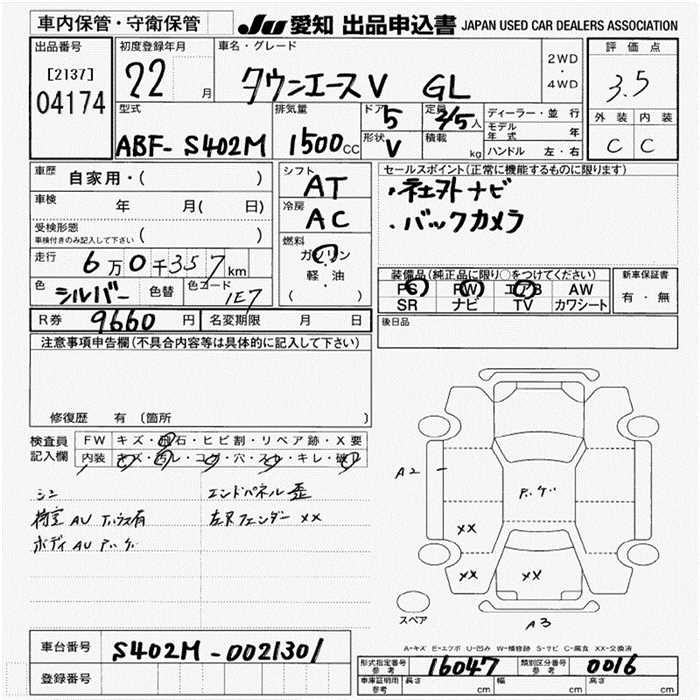 車内保管・守衛保管
JU 愛知 出品申込書 JAPAN USED CAR DEALERS ASSOCIATION
出品番号
[2137]
04174
初度登録年月
22 月
車名・グレード
タウンエースV GL
2WD
・
4WD
評価点
3.5
外装 内装
C C
型式
ABF-S402M
排気量
1500cc
ドア
5
形状
V
定員
2/5人
積載
kg
ディーラー・並行
モデル年式 年
ハンドル 左・右
車歴 自家用・( )
車検 年 月( 日)
受検形態
車検付きのみ記入して下さい ( )
走行 6万0千357km
色 シルバー 色替 色コード 1E7
シフト
AT
冷房
AC
燃料
ガソリン
・
軽・油
( )
セールスポイント(正常に機能するものに限ります)
・ナビ
・バックカメラ
装備品(純正品に限り○をつけてください)
PS PW エアB AW
SR ナビ TV カワシート
新車保証書
有・無
R券 9660円 名変期限 月 日
後日品
注意事項申告欄(不具合内容等は具体的に記入して下さい)
修復歴 有 (箇所 )
検査員
記入欄
FW キズ・飛石・ヒビ割・リペア跡・X要
内装 キズ・汚レ・コゲ・穴・スレ・キレ・破レ
エンドパネル歪
左Rフェンダー XX
ボディAU
A2
XX
XX
XX
A3
スペア
A-キズ E-エクボ U-凹み W-補修跡 S-サビ C-腐食 XX-交換済
車台番号 S402M-0021301
登録番号
形式指定番号
参考
16047
類別区分番号
参考
0016
車庫証明用
参考
長さ cm 幅 cm 高さ cm